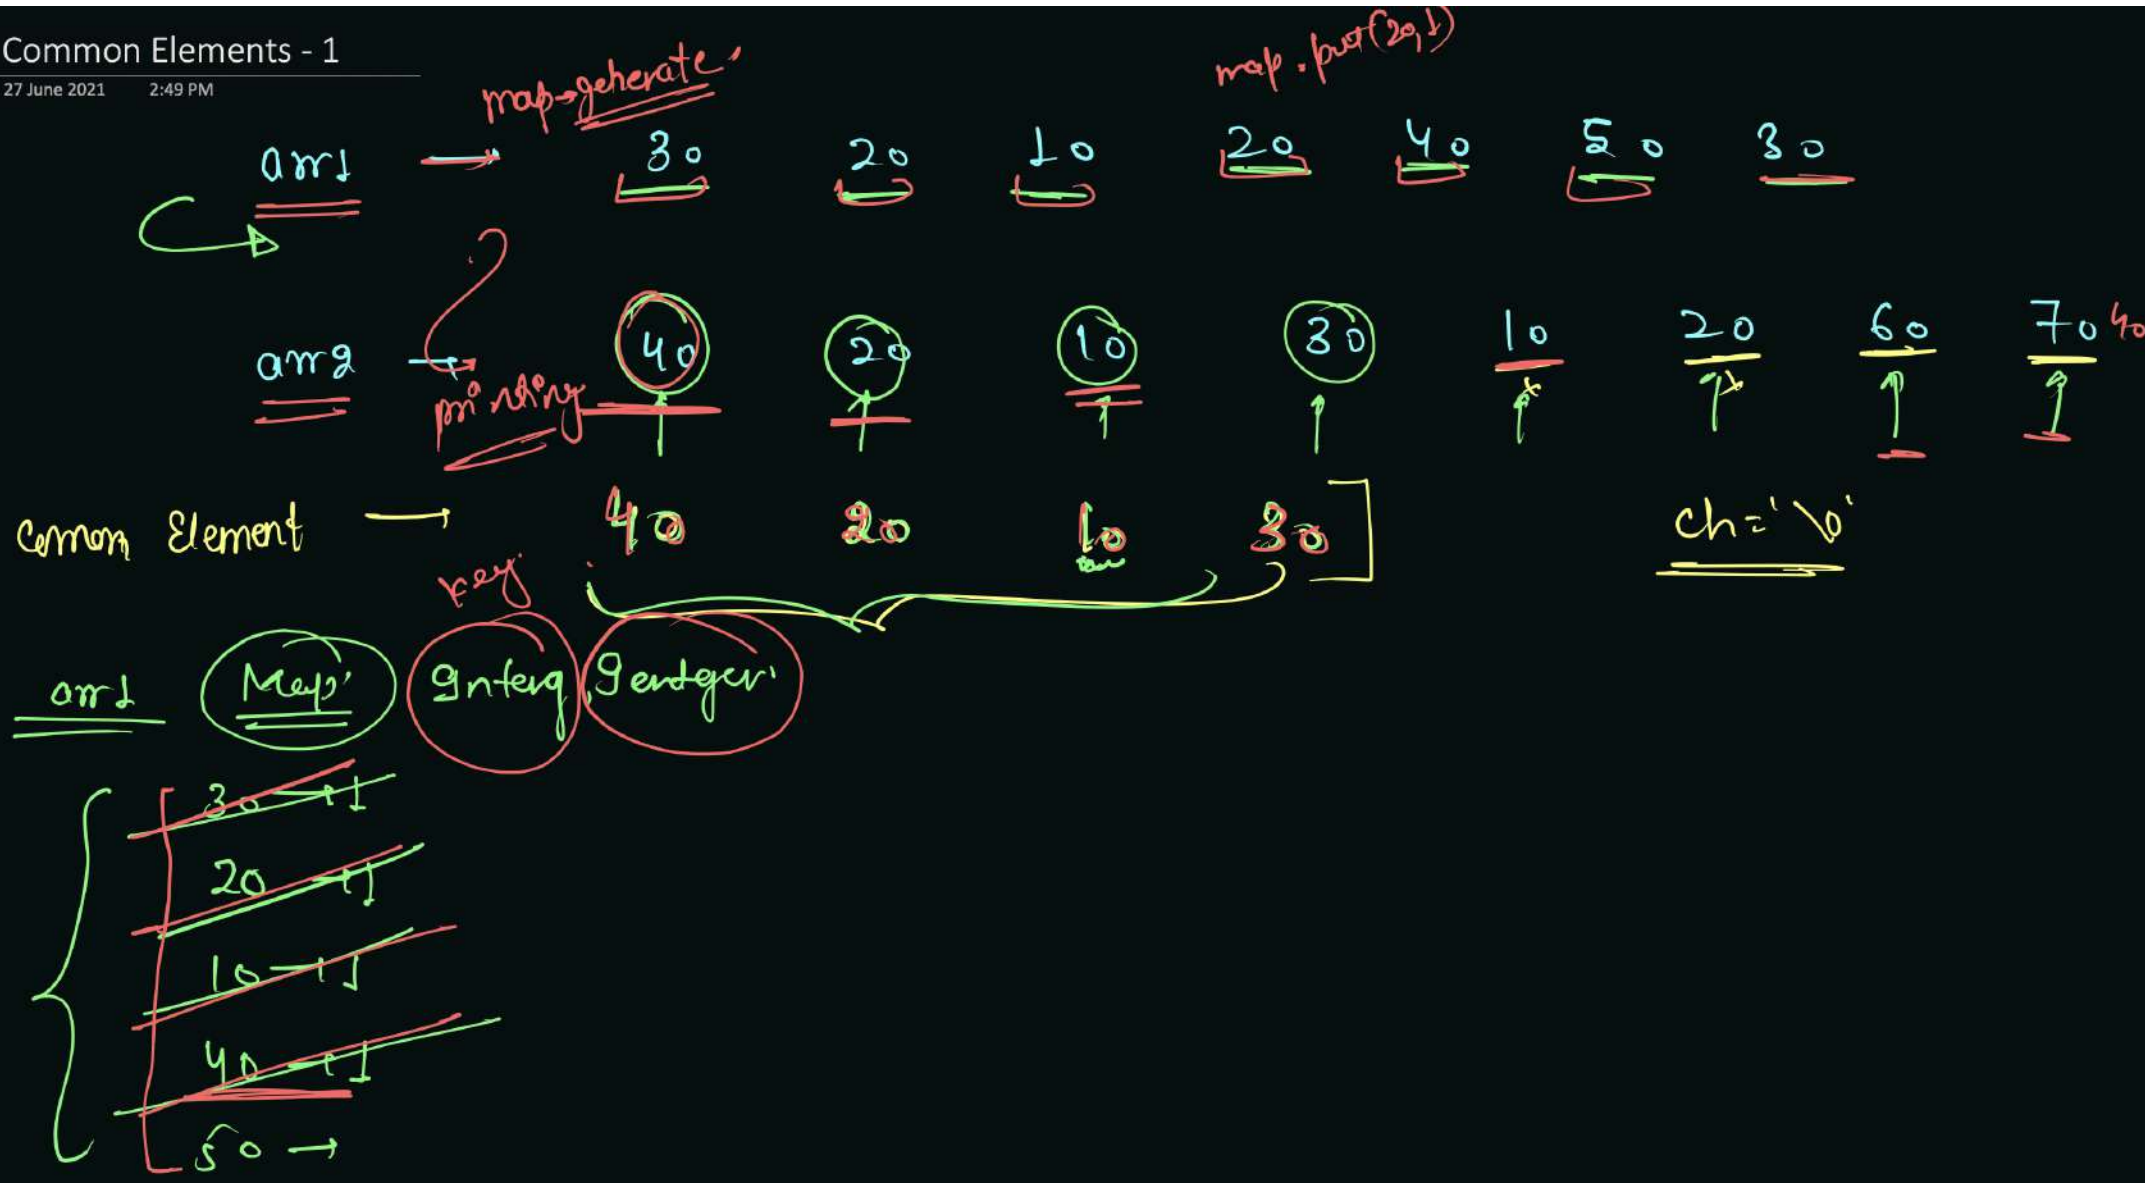 Common Elements - 1
27 June 2021 2:49 PM
map→generate
map.put(20,1)
arr1 → 30 20 10 20 40 50 30
arr2 → 40 20 10 30 10 20 60 70 40
printing
Common Element → 40 20 10 30
ch='\0'
key
arr1 Map
30 → 1
20 → 1
10 → 1
40 → 1
50 →